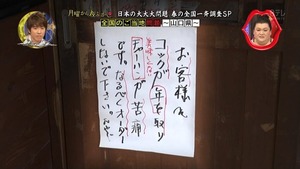 月曜から夜ふかし
日本の大大大問題 春の全国一斉調査SP
全国のご当地問題 ～山口県～
お客様へ
コックが年を取り
美味しくない
チャーハンが苦痛
です。なるべくオーダー
しないで下さい。